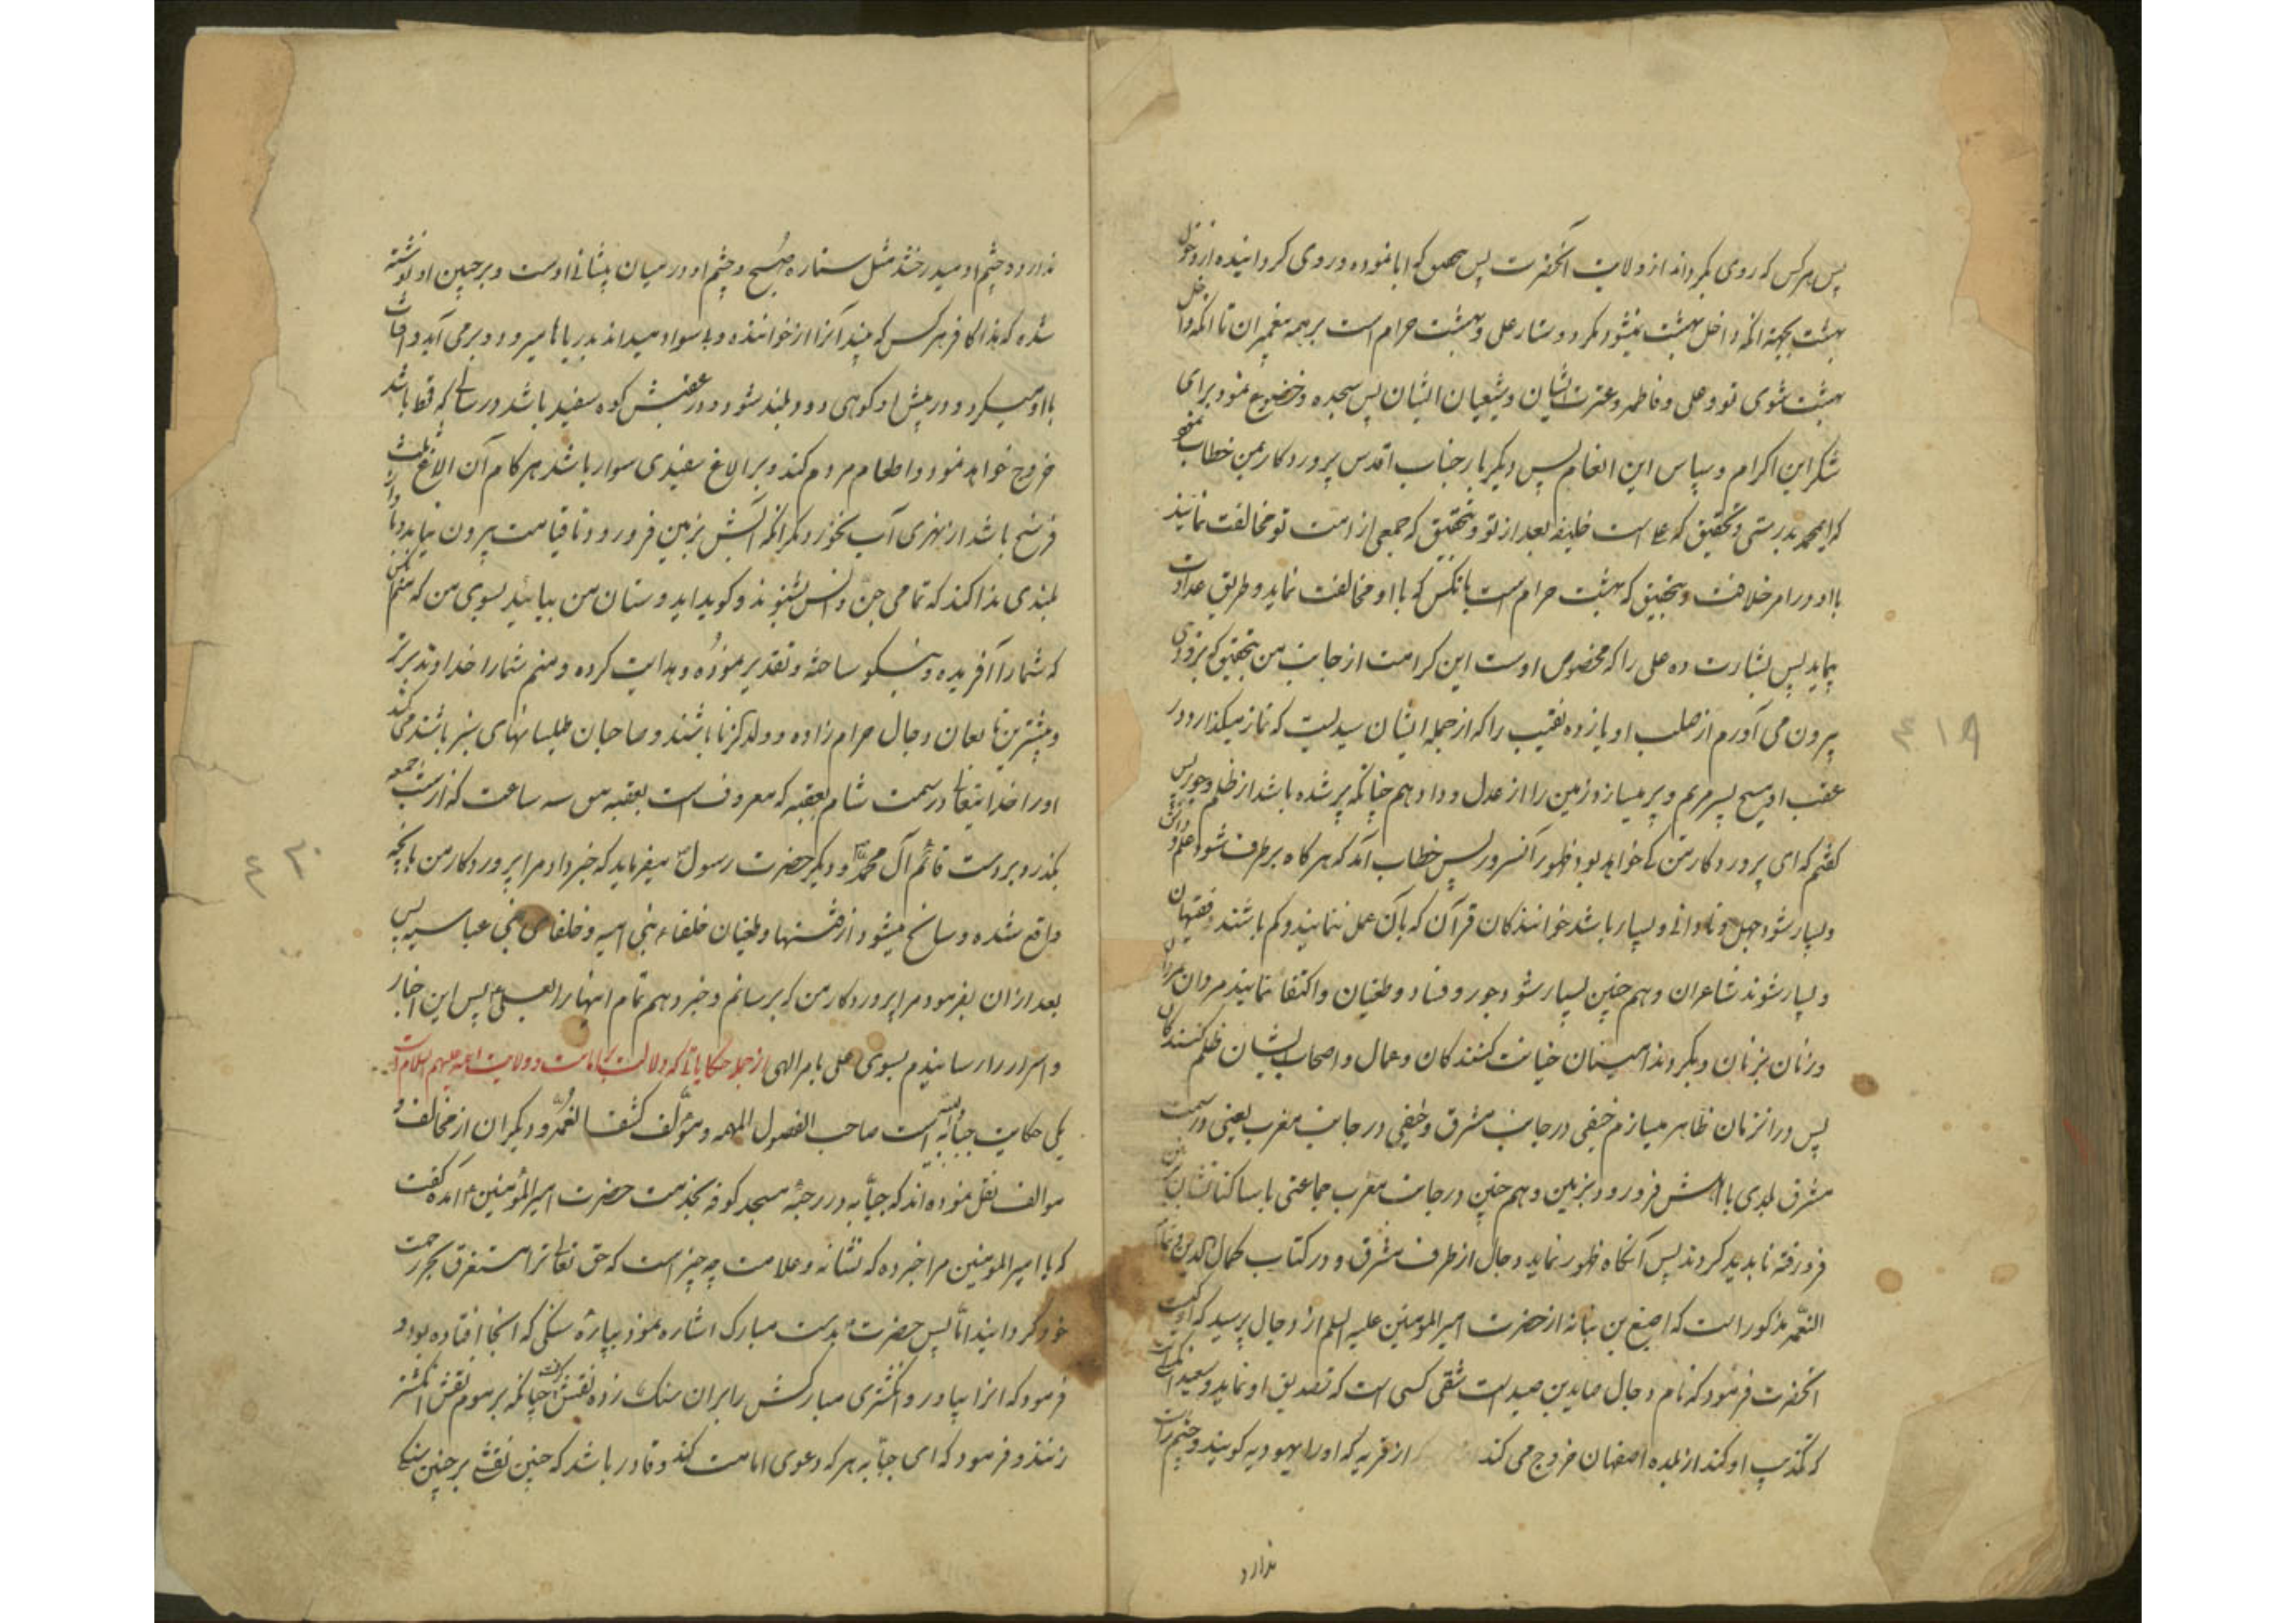 پس هر کس که روی بگرداند از ولایت آنحضرت پس بتحقیق که ابا نموده و روی گردانیده از دخول
بهشت بجهة آنکه داخل بهشت نمیشود مگر دوستار علی و بهشت حرام است بر همه پیغمبران تا آنکه داخل
بهشت شوی تو و علی و فاطمه و عترت ایشان و شیعیان ایشان پس سجده و خضوع نمود برای
شکر این اکرام و سپاس این انعام پس دیگر بار جناب اقدس پروردگار بمن خطاب نمود
که ای محمد بدرستی و تحقیق که علی است خلیفه بعد از تو و بتحقیق که جمعی از امت تو مخالفت نمایند
با او در امر خلافت و بتحقیق که بهشت حرام است بانکس که با او مخالفت نماید و طریق عداوت
پیماید پس بشارت ده علی را که مخصوص اوست این کرامت از جانب من بتحقیق که بزودی
بیرون می آورم از صلب او یازده نقیب را که از جمله ایشان سیدیست که نماز میگذارد در
عقب او مسیح پسر مریم و پر میسازد زمین را از عدل و داد همچنانکه پر شده باشد از ظلم و جور پس
گفتم که ای پروردگار من کی خواهد بود ظهور آنسرور پس خطاب آمد که هر گاه برطرف شود علم و دانش
و بسیار شود جهل و نادانی و بسیار باشد خوانندگان قرآن که بآن عمل ننمایند و کم باشند فقیهان
و بسیار شوند شاعران و هم چنین بسیار شود جور و فساد و طغیان و اکتفا نمایند مردان بمردان
و زنان بزنان و بگردند امینان خیانت کنندگان و عمال و اصحاب ایشان ظلم کنندگان
پس در انزمان ظاهر میسازم خسفی در جانب مشرق و خسفی در جانب مغرب یعنی در سمت
مشرق بلدی با اهلش فرو رود بزمین و هم چنین در جانب مغرب جماعتی با ساکنانشان
فرو رفته ناپدید گردند پس آنگاه ظهور نماید دجال از طرف مشرق و در کتاب کمال الدین و تمام
النعمه مذکور است که اصبغ بن نباته از حضرت امیر المومنین علیه السلم از دجال پرسید که او کیست
انحضرت فرمود که نام دجال صاید بن صید است شقی کسی است که تصدیق او نماید و سعید انکس است
که تکذیب او کند از بلده اصفهان خروج می کند از قریه که او را یهودیه گویند و چشم راست
ندارد
٤١٩
ندارد و چشم او میدرخشد مثل ستاره صبح و چشم او در میان پیشانی اوست و بر جبین او نوشته
شده که هذا کافر هر کس که بیند آنرا از خواننده و بی سواد میداند بدریاها میرود و بر می آید و آفتاب
با او میگردد و در پیش او کوهی دود بلند شود و در عقبش کوه سفید باشد در سالی که قحط باشد
خروج خواهد نمود و اطعام مردم کند و بر الاغ سفیدی سوار باشد هر گام آن الاغ ثلث
فرسخ باشد از نهری آب نخورد مگر آنکه آبش بزمین فرو رود و تا قیامت بیرون نیاید و باواز
بلندی ندا کند که تمامی جن و انس بشنوند و گوید ای دوستان من بیائید بسوی من که منم آنکس
که شما را آفریده و نیکو ساخته و تقدیر نموده و هدایت کرده و منم شما را خداوند برتر
و بیشترین تابعان دجال حرام زاده و ولد الزنا باشند و صاحبان طیلسانهای سبز باشند می کشد
او را خدا یتعالی در سمت شام بعقبه که معروف است بعقبه سه ساعت که از شب جمعه
بگذرد بر دست قائم آل محمد و دیگر حضرت رسول میفرماید که خبر داد مرا پروردگار من بانچه
واقع شده و سانح میشود از فتنها و طغیان خلفاء بنی امیه و خلفای بنی عباسیه پس
بعد از ان بفرمود مرا پروردگار من که برسانم و خبر دهم تمام اینها را بعلی پس این اخبار
و اسرار را رسانیدم بسوی علی بامر الهی از جمله حکایاتی که دلالت بر امامت و ولایت ائمه علیهم السلام دارد
یکی حکایت حبابه است صاحب الفصول المهمه و مؤلف کشف الغمه و دیگران از مخالف و
موالف نقل نموده اند که حبابه در رحبه مسجد کوفه بخدمت حضرت امیر المؤمنین آمده گفت
که یا امیر المومنین مرا خبر ده که نشانه و علامت چه چیز است که حق تعالی ترا مستغرق بحر رحمت
خود گرداند اما پس حضرت بدست مبارک اشاره نمود بپاره سنگی که انجا افتاده بود و
فرمود که انرا بیاور و انگشتری مبارکش را بران سنگ زده نقش گرفت چنانکه بر موم نقش انگشتر
زنند و فرمود که ای حبابه هر که دعوی امامت کند و قادر باشد که چنین نقشی بر چنین سنگ
٤٢٠